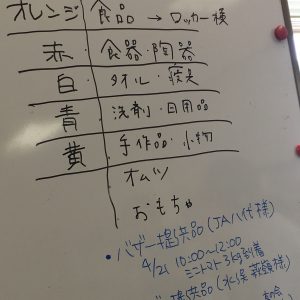 オレンジ 食品 → ロッカー横
赤 食器・陶器
白 タオル・寝具
青 洗剤・日用品
黄 手作品・小物
オムツ
おもちゃ
・バザー提供品(JA八代様)
4/21 10:00〜12:00
ミニトマト3kg到着
提供品(水俣 様)